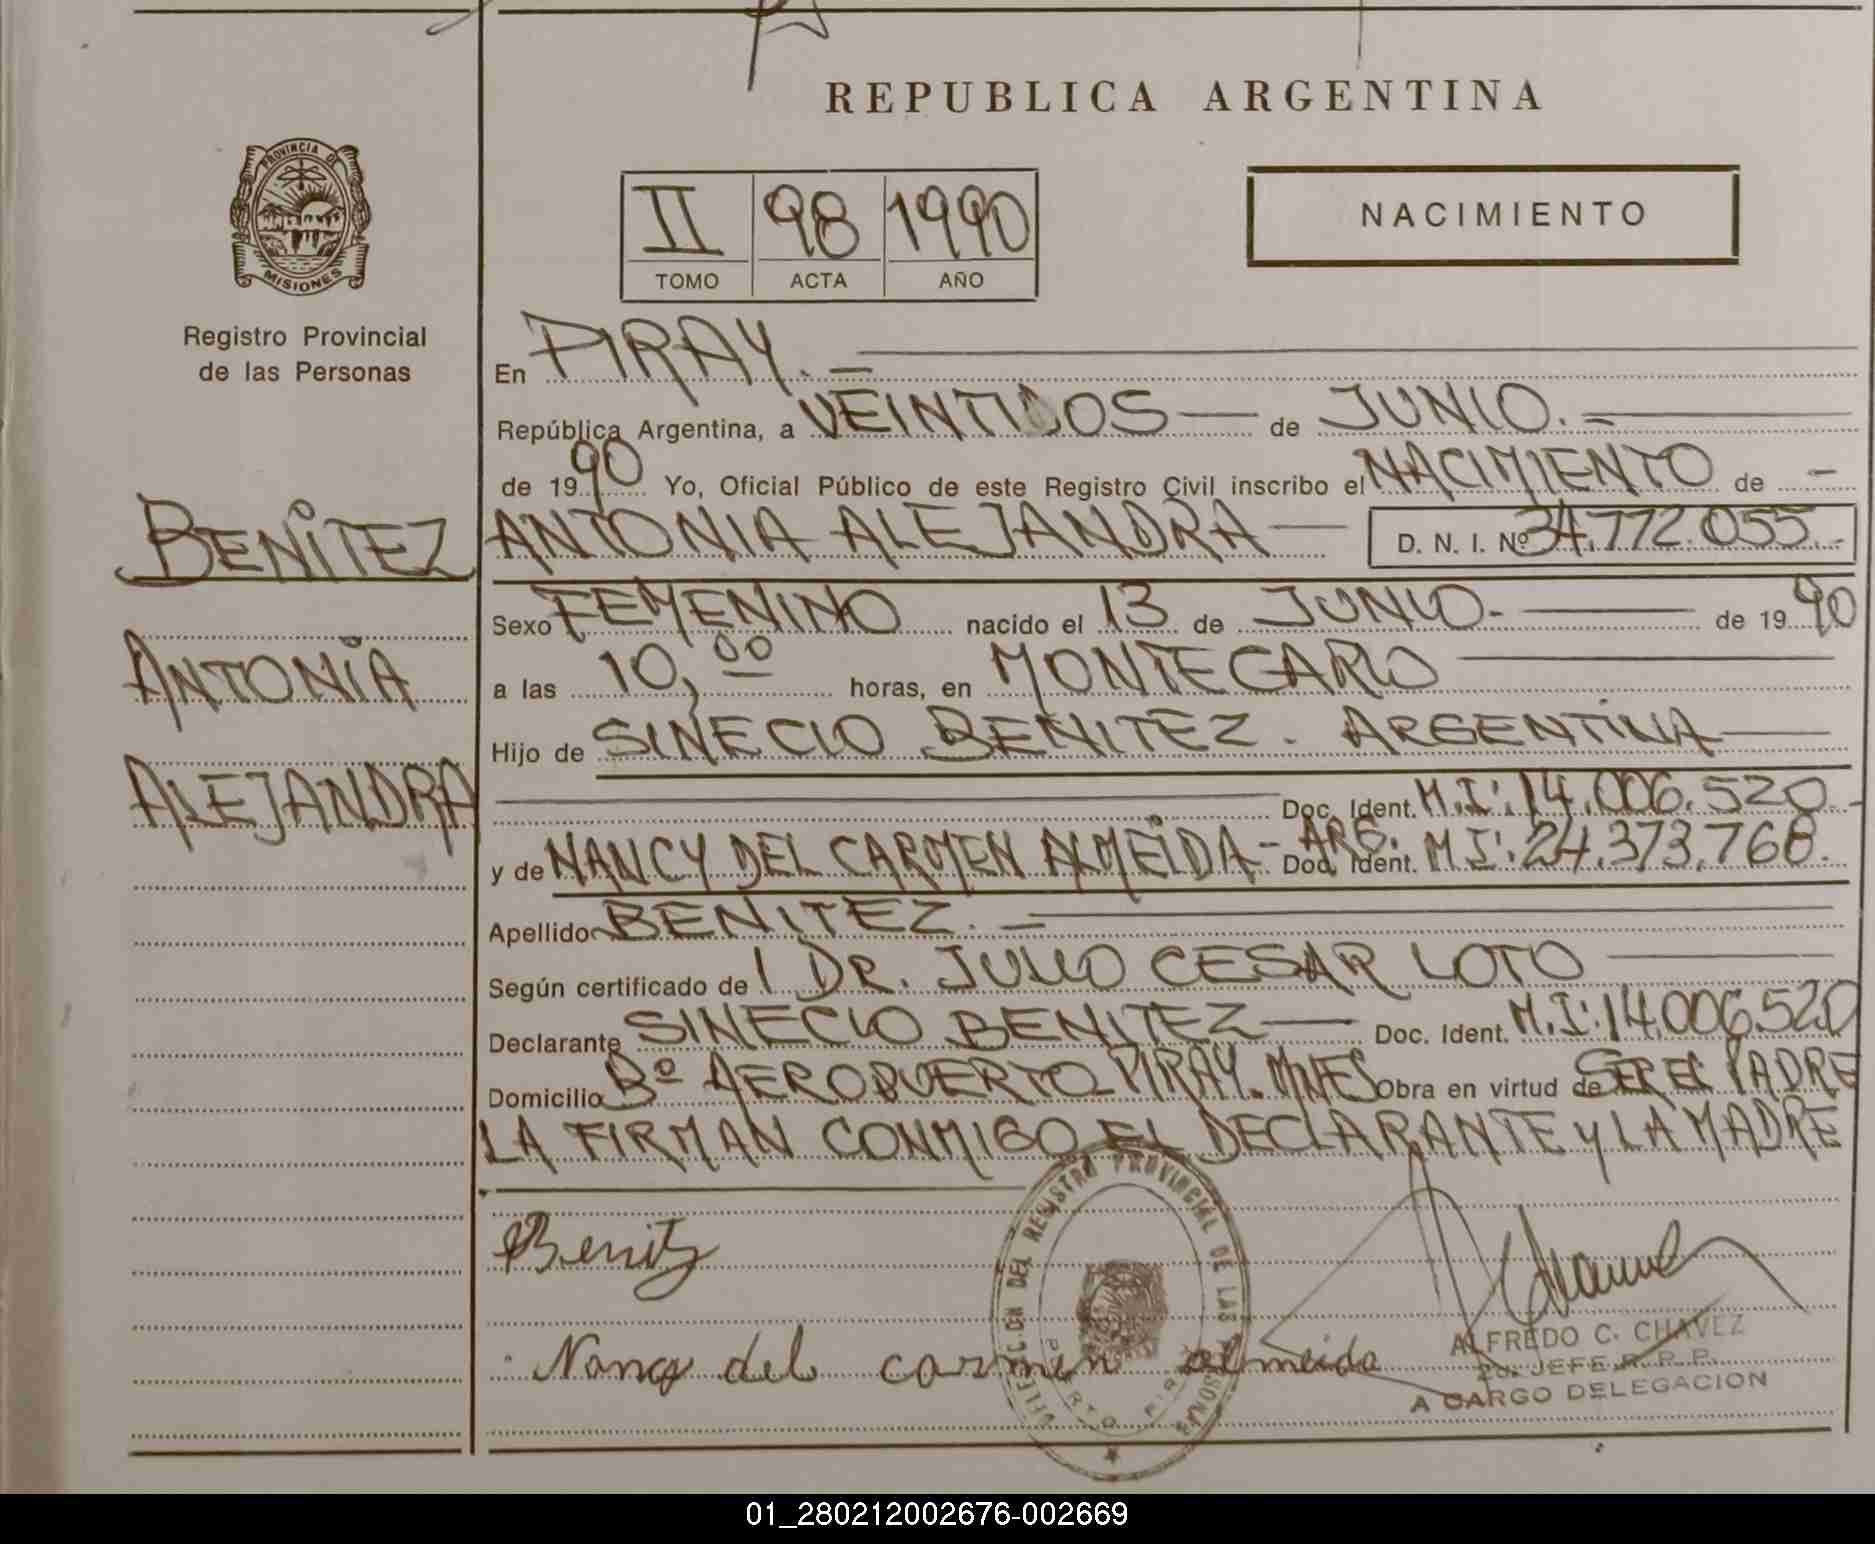 REPUBLICA ARGENTINA
PROVINCIA DE
MISIONES
Registro Provincial
de las Personas
II 98 1990
TOMO ACTA AÑO
NACIMIENTO
BENITEZ
ANTONIA
ALEJANDRA
En PIRAY. —
República Argentina, a VEINTIDOS — de JUNIO. —
de 19 90 Yo, Oficial Público de este Registro Civil inscribo el NACIMIENTO de —
ANTONIA ALEJANDRA — D. N. I. Nº 34.772.055.-
Sexo FEMENINO nacido el 13 de JUNIO. — de 19 90
a las 10,00 horas, en MONTECARLO —
Hijo de SINECIO BENITEZ. ARGENTINA —
Doc. Ident. M.I: 14.006.520.-
y de NANCY DEL CARMEN ALMEIDA - ARG. Doc. Ident. M.I: 24.373.768.
Apellido BENITEZ. —
Según certificado de l DR. JULIO CESAR LOTO —
Declarante SINECIO BENITEZ — Doc. Ident. M.I: 14.006.520
Domicilio Bº AEROPUERTO PIRAY. MNES Obra en virtud de SER EL PADRE
LA FIRMAN CONMIGO EL DECLARANTE Y LA MADRE
Benitz
Nancy del carmen almeida
DEL REGISTRO PROVINCIAL DE LAS PERSONAS
ALFREDO C. CHAVEZ
2o. JEFE R. P. P.
A CARGO DELEGACION
01_280212002676-002669